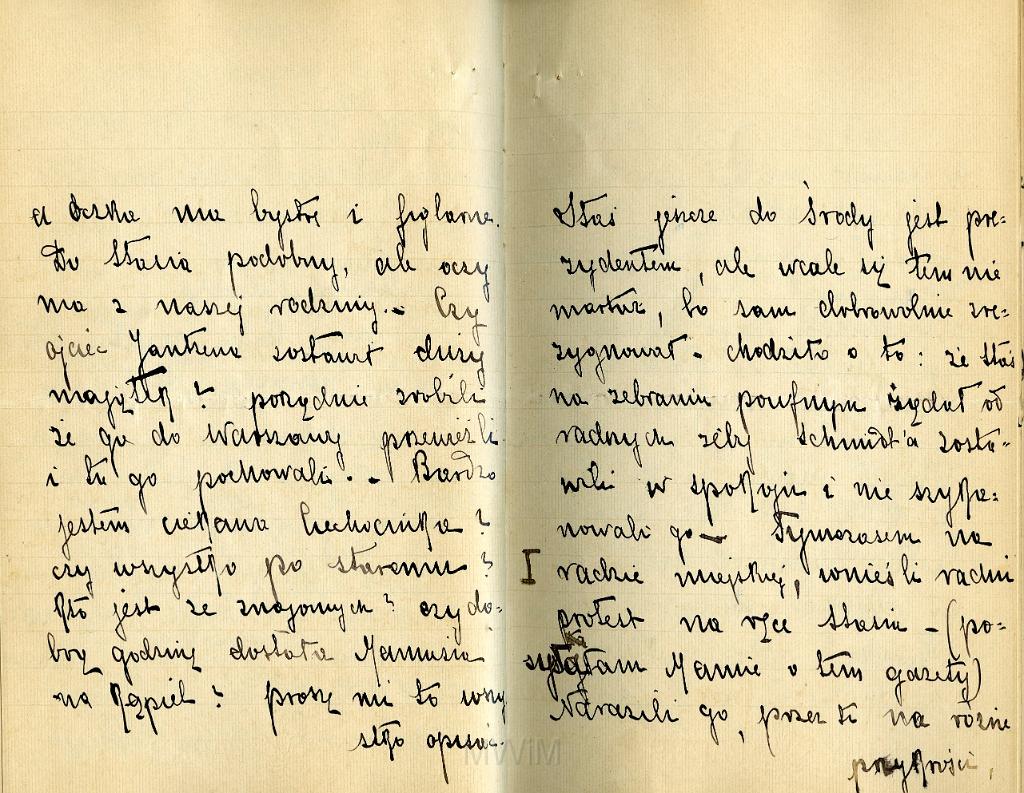 a oczka ma bystrę i figlarne.
Do Stasia podobny, ale oczy
ma z naszej rodziny. - Czy
ojciec Jantzena zostawił duży
majątek? porządnie zrobili
że go do Warszawy przewieźli
i tu go pochowali. - Bardzo
jestem ciekawa Ciechocinka?
czy wszystko po staremu?
Kto jest ze znajomych? czy do-
brą godzinę dostała Mamusia
na kąpiel? proszę mi to wszy
stko opisać.
Staś jeszcze do środy jest pre-
zydentem, ale wcale się tem nie
martwi, bo sam dobrowolnie zre-
zygnował - chodziło o to: że Staś
na zebraniu poufnym żądał od
radnych żeby Schmidt'a zosta-
wili w spokoju i nie szyka-
nowali go - Tymczasem na
I radzie miejskiej, wnieśli radni
protest na ręce Stasia - (po-
syłałam Mamie o tem gazety)
Narazili go, przez to na różne
przykrości,
MWiM